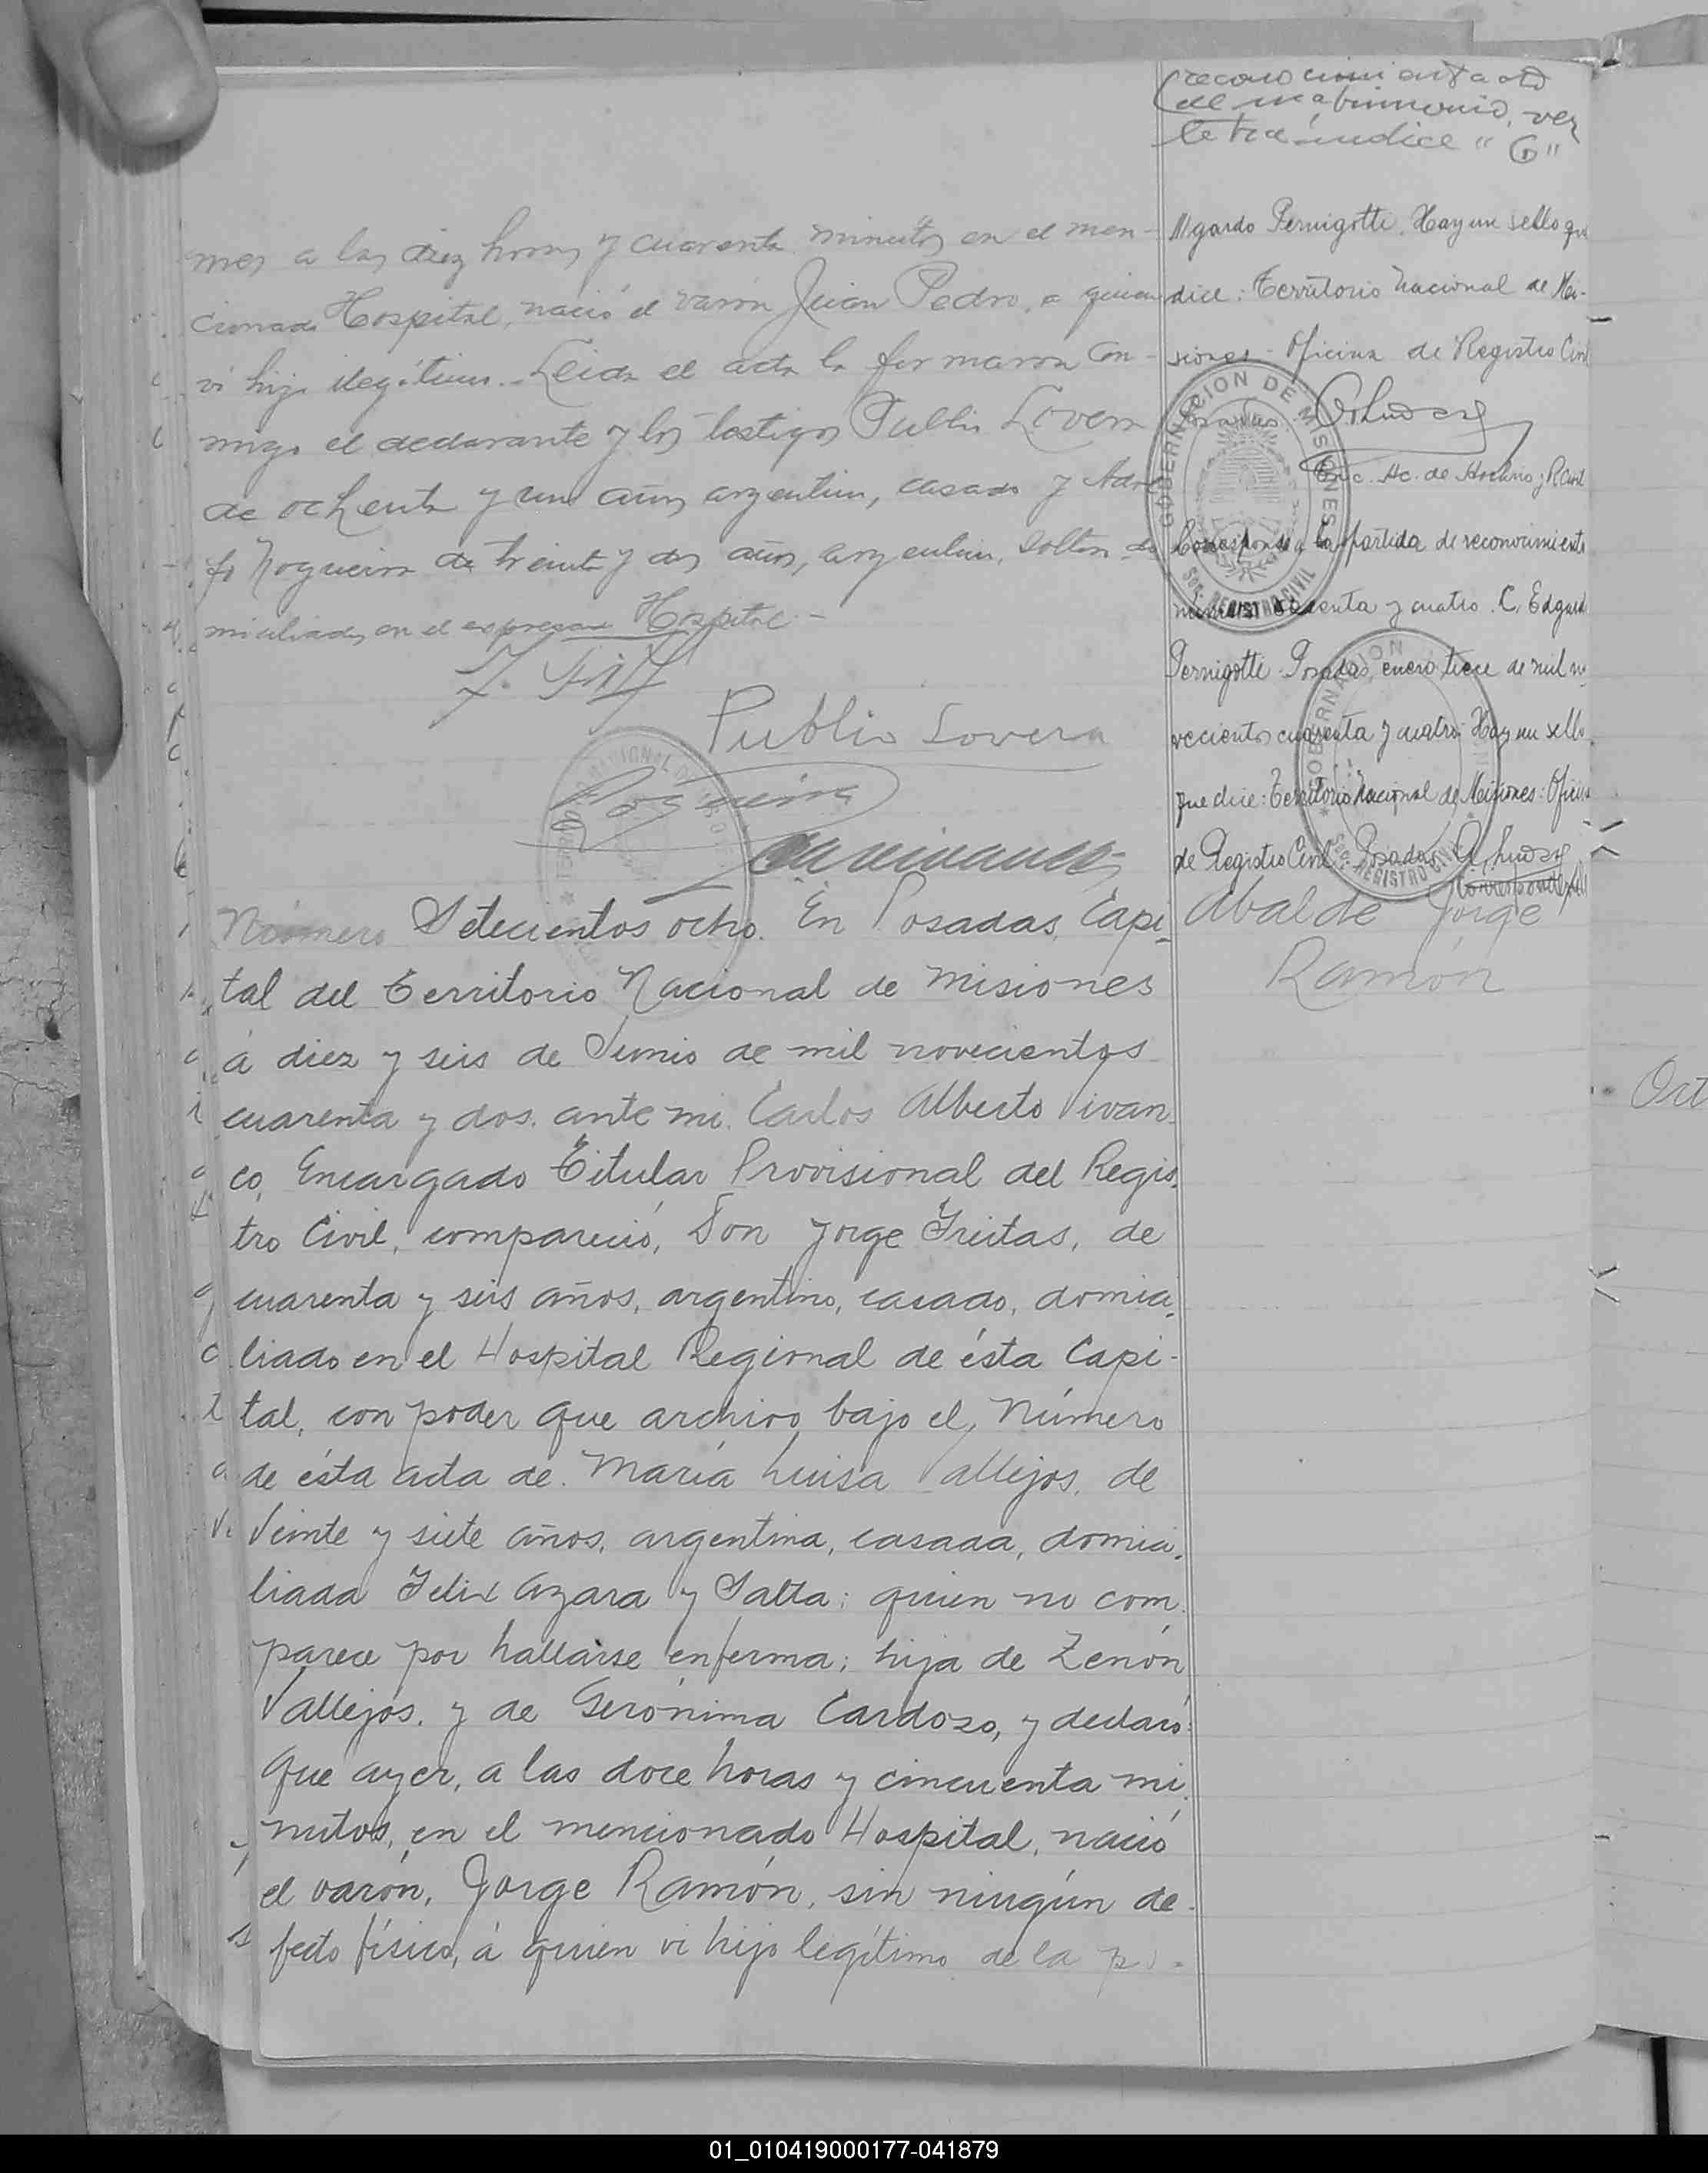 reconocimiento acto
de matrimonio, ver
letra índice "G"
mes a las diez horas y cuarenta minutos en el men-
cionado Hospital, nació el varón Juan Pedro, a quien
vi hijo ilegítimo. Leida el acta la firmaron con-
migo el declarante y los testigos Publio Lovera
de ochenta y un años argentino, casado y Adol
fo Nogueira de treinta y dos años, argentino, soltero do
miciliados en el expresado Hospital.-
Publio Lovera
Nogueira
Edgardo Pernigotti. Hay un sello que
dice: Territorio Nacional de Mi-
siones - Oficina de Registro Civil
Posadas
Corresponde a la partida de reconocimiento
número y cuatro. C. Edgard
Pernigotti. Posadas, enero trece de mil no
vecientos cuarenta y cuatro. Hay un sello
que dice: Territorio Nacional de Misiones: Oficina
de Registro Civil. Posadas.
GOBERNACION DE MISIONES
SEC. REGISTRO CIVIL
GOBERNACION
SEC. REGISTRO CIVIL
Número Setecientos ocho. En Posadas, Capi-
tal del Territorio Nacional de Misiones
á diez y seis de Junio de mil novecientos
cuarenta y dos. ante mi. Carlos Alberto Vivan-
co, Encargado Titular Provisional del Regis-
tro Civil, compareció, Don Jorge Freitas, de
cuarenta y seis años, argentino, casado, domici-
liado en el Hospital Regional de ésta Capi-
tal, con poder que archivo bajo el, Número
de ésta acta de. María Luisa Vallejos, de
Veinte y siete años, argentina, casada, domici-
liada Felix Azara y Salta: quien no com-
parece por hallarse enferma; hija de Zenón
Vallejos. y de Gerónima Cardozo, y declaró:
que ayer, a las doce horas y cincuenta mi-
nutos, en el mencionado Hospital, nació
el varón, Jorge Ramón, sin ningún de-
fecto físico, á quien vi hijo legítimo de la
Abalde Jorge
Ramón
01_010419000177-041879